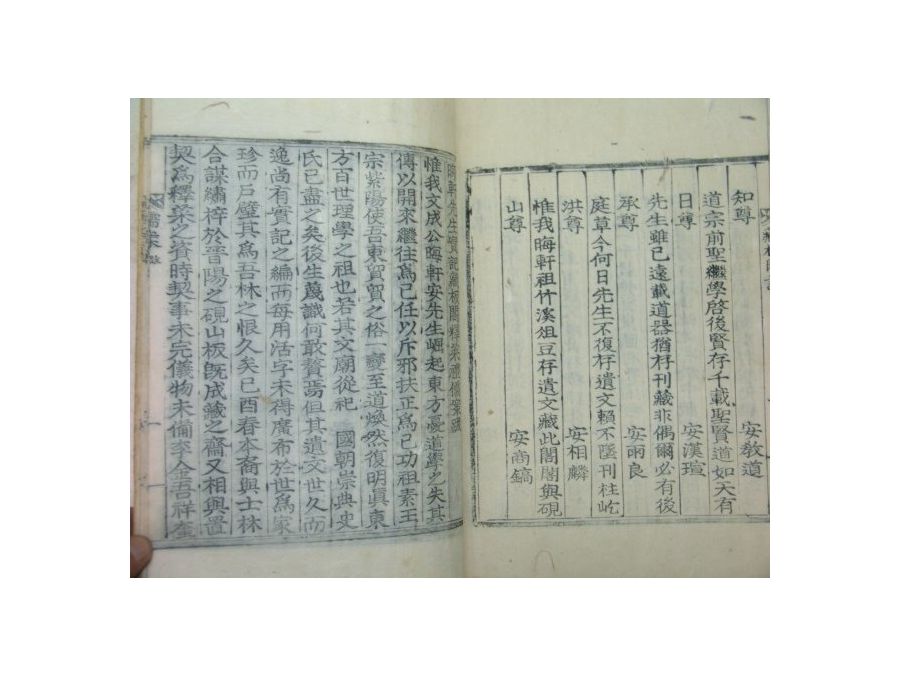 知尊 安敎道
道宗前聖繼學啓後賢存千載聖賢道如天有
日尊 安漢瑄
先生雖已遠載道器猶存刊藏非偶爾必有後
承尊 安雨良
庭草今何日先生不復存遺文賴不墜刊柱屹
洪尊 安相麟
惟我晦軒祖竹溪俎豆存遺文藏此閣閣與硯
山尊 安商鎬
晦軒先生實記
惟我文成公晦軒安先生崛起東方憂道學之失其
傳以開來繼往爲己任以斥邪扶正爲己功祖素王
宗紫陽使吾東貿貿之俗一變至道煥然復明眞東
方百世理學之祖也若其文廟從祀 國朝崇典史
氏已盡之矣後生蔑識何敢贅焉但其遺文世久而
逸尚有實記之編而每用活字未得廣布於世爲家
珍而戶璧其爲吾林之恨久矣己酉春本裔與士林
合謀繡梓於晋陽之硯山板旣成藏之齋又相與置
契爲釋菜之資時契事未完儀物未備李金吾祥奎